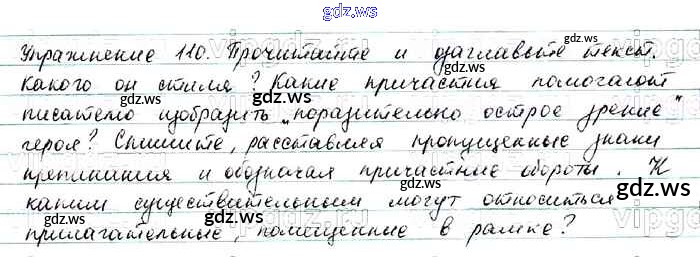 gdz.ws
Упражнение 110. Прочитайте и озаглавьте текст.
gdz.ws gdz.ws
Какого он стиля? Какие причастия помогают
gdz.ws gdz.ws
писателю изобразить „поразительно острое зрение"
героя? Спишите, расставляя пропущенные знаки
gdz.ws gdz.ws
препинания и обозначая причастные обороты. К
каким существительным могут относиться
gdz.ws gdz.ws
прилагательные, помещенные в рамке?
gdz.ws